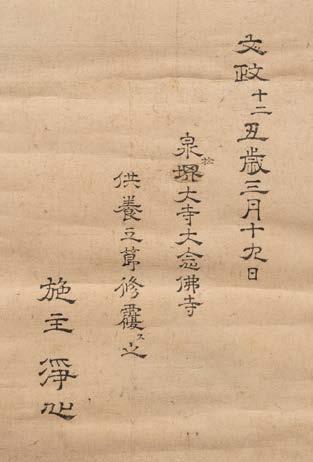 文政十二丑歳三月十九日
泉堺於大寺大念佛寺
供養之莭修覆ス之
施主 淨心